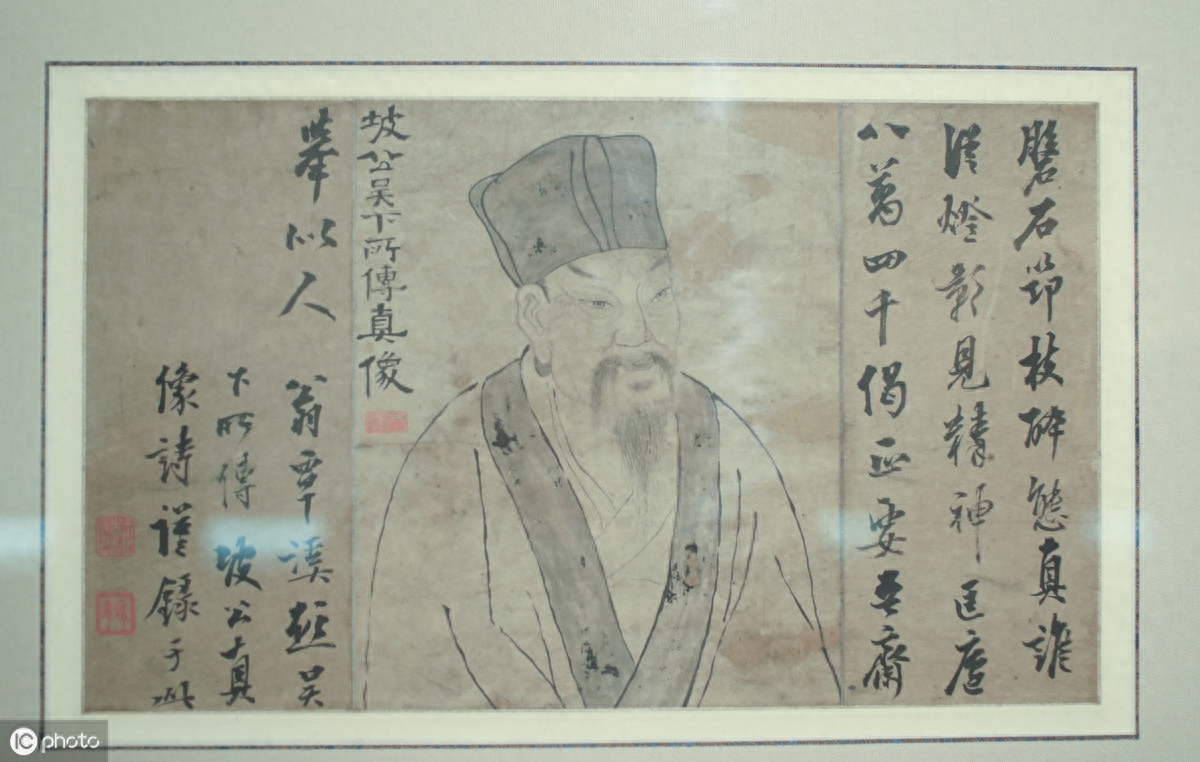 磐石笻枝醉態真誰
從燈影見精神匡廬
八萬四千偈正要吾齋
坡公吴下所傳真像
舉似人 翁覃溪題吴
下所傳坡公真
像詩謹錄于此
IC photo